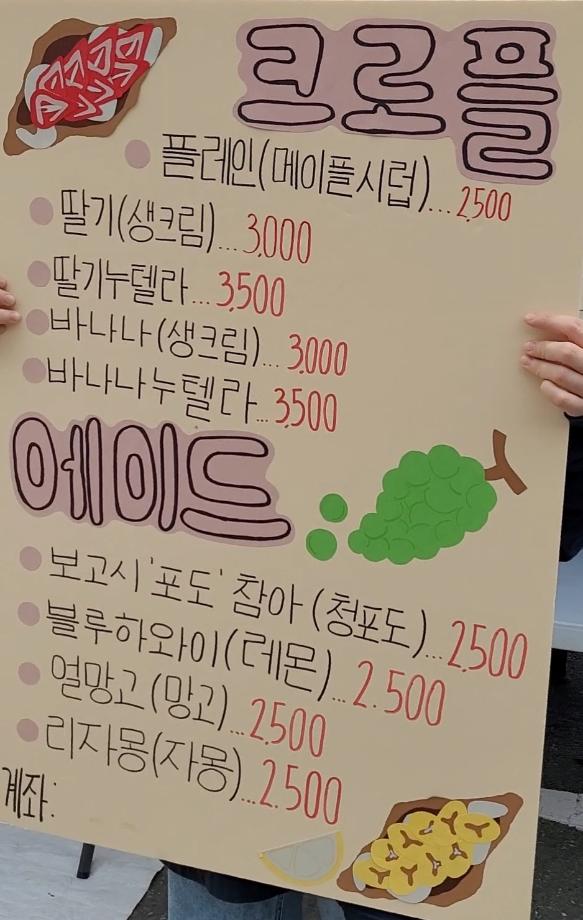 크로플
플레인(메이플시럽)...2,500
딸기(생크림)...3,000
딸기누텔라...3,500
바나나(생크림)...3,000
바나나누텔라...3,500
에이드
보고시'포도'참아(청포도)...2,500
블루하와이(레몬)...2.500
얼망고(망고)...2,500
리자몽(자몽)...2.500
계좌: